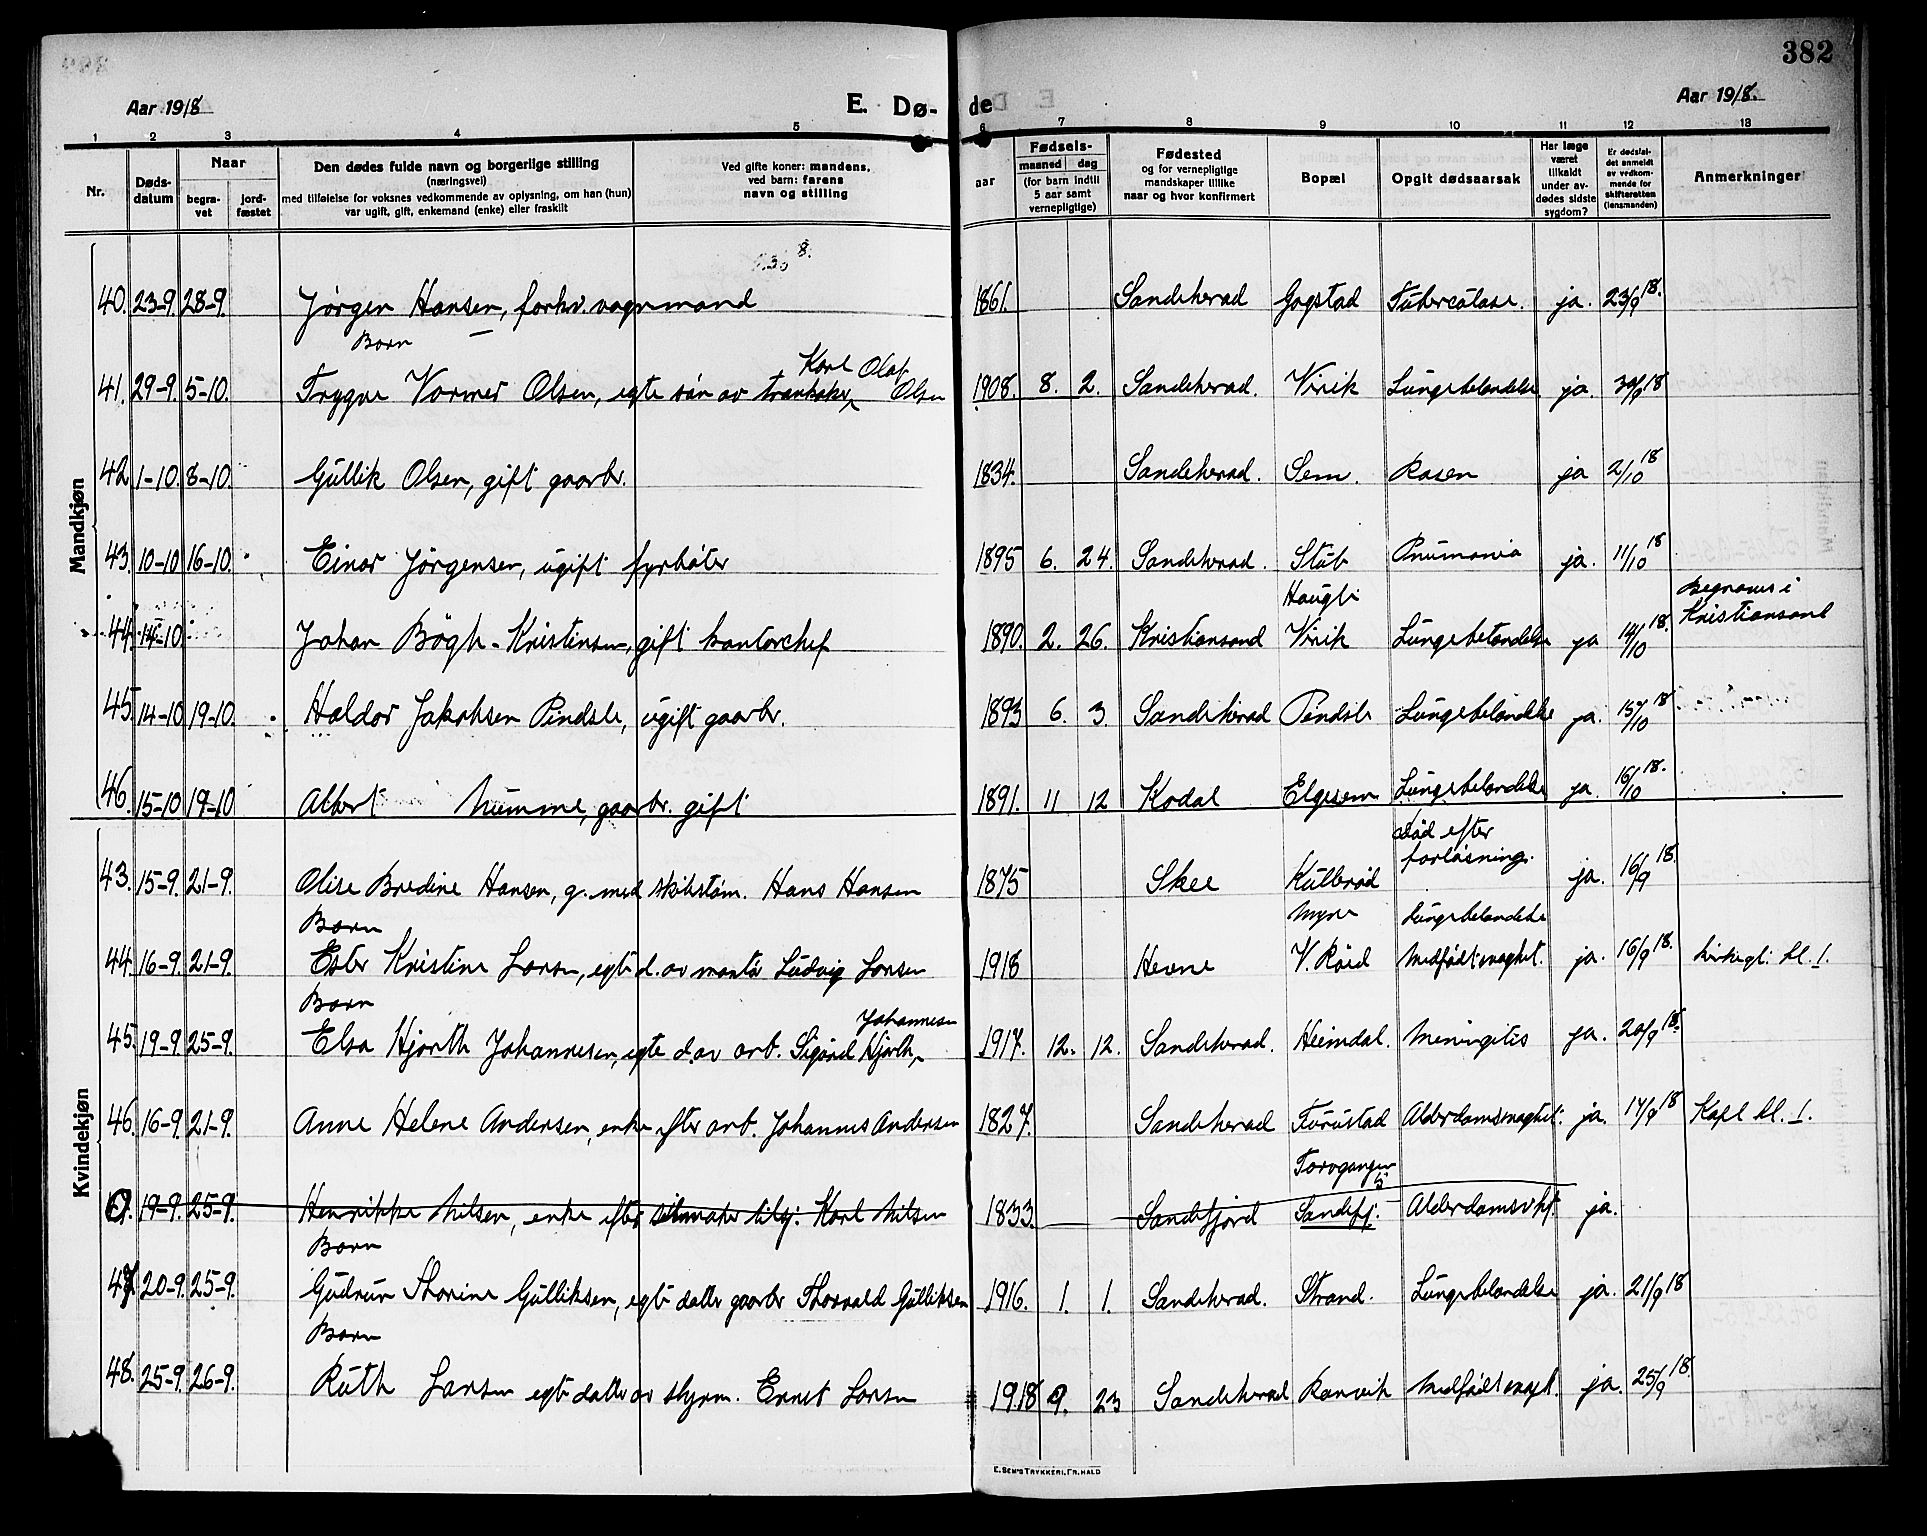 382
Aar 1918
E. Dø- de
Aar 1918.
1 2 3 4 5 6 7 8 9 10 11 12 13
Nr. Døds-datum Naar begra-vet jord-fæstet Den dødes fulde navn og borgerlige stilling (næringsvei) med tilføielse for voksnes vedkommende av oplysning, om han (hun) var ugift, gift, enkemand (enke) eller fraskilt Ved gifte koner: mandens, ved barn: farens navn og stilling aar Fødsels- maaned dag (for barn indtil 5 aar samt vernepligtige) Fødested og for vernepligtige mandskaper tillike naar og hvor konfirmert Bopæl Opgit dødsaarsak Har læge været tilkaldt under av-dødes sidste sygdom? Er dødsfal-det anmeldt av vedkom-mende for skifteretten (lensmanden) Anmerkninger
Mandkjøn
40. 23-9. 28-9. Jørgen Hansen, forhv. vognmand 1861. Sandeherad Gogstad Tuberculose. ja. 23/9 18.
Barn
Karl Olaf
41. 29-9. 5-10. Trygve Vormer Olsen, egte søn av trankoker Olsen 1908. 8. 2. Sandeherad. Virik Lungebetændelse ja. 30/9 18
42 1-10. 8-10. Gullik Olsen, gift gaarbr. 1834. Sandeherad. Sem. Rosen ja 2/10 18
43. 10-10 16-10. Einar Jørgensen, ugift fyrbøter 1895 6. 24. Sandeherad. Stub Pnumonia ja. 11/10 18
Haugli Begraves i
44. 14-10 Johan Bøgh-Kristensen, gift kontorchef 1890. 2. 26. Kristiansand Virik Lungebetændelse ja 14/10 18. Kristiansand
45. 14-10 19-10. Haldor Jakobsen Pindsle, ugift gaarbr. 1893 6. 3. Sandeherad Pindsle Lungebetændelse ja. 15/10 18
46. 15-10 19-10 Albert Numme, gaarbr. gift 1891. 11 12 Kodal Elgesem Lungebetændelse ja. 16/10 18.
Kvindekjøn
død efter
forløsning.
43. 15-9. 21-9. Olise Bredine Hansen, g. med skibstøm. Hans Hansen 1875 Skee Kullerød ja. 16/9 18.
Barn Myra Lungebetændelse
44. 16-9. 21-9. Ester Kristine Larsen, egte d. av montør Ludvig Larsen 1918 Hevne V. Røid Medfødt svaghet. ja. 16/9 18. kl. 1.
Barn
Johannesen
45. 19-9. 25-9. Elsa Hjorth Johannesen, egte d. av arb. Sigurd Hjorth 1917. 12. 12. Sandeherad. Heimdal. Meningitis ja. 20/9 18.
46. 16-9. 21-9. Anne Helene Andersen, enke efter arb. Johannes Andersen 1827. Sandeherad Furustad Alderdomssvaghet. ja. 17/9 18 Kapl kl. 1.
Torvgangen
5
19-9. 25-9. Henrikke Nilsen, enke efter Karl Nilsen 1833. Sandefjord Sandefj. Alderdomsv. ja.
Barn
47. 20-9. 25-9. Gudrun Thorine Gulliksen, egte datter gaarbr Thorvald Gulliksen 1916. 1. 1. Sandeherad. Strand. Lungebetændelse ja. 21/9 18
Barn
48. 25-9. 26-9. Ruth Larsen egte datter av styrm. Ernst Larsen 1918 9. 23 Sandeherad Ranvik Medfødt svagh. ja. 25/9 18.
E. SEM'S TRYKKERI, FR.HALD